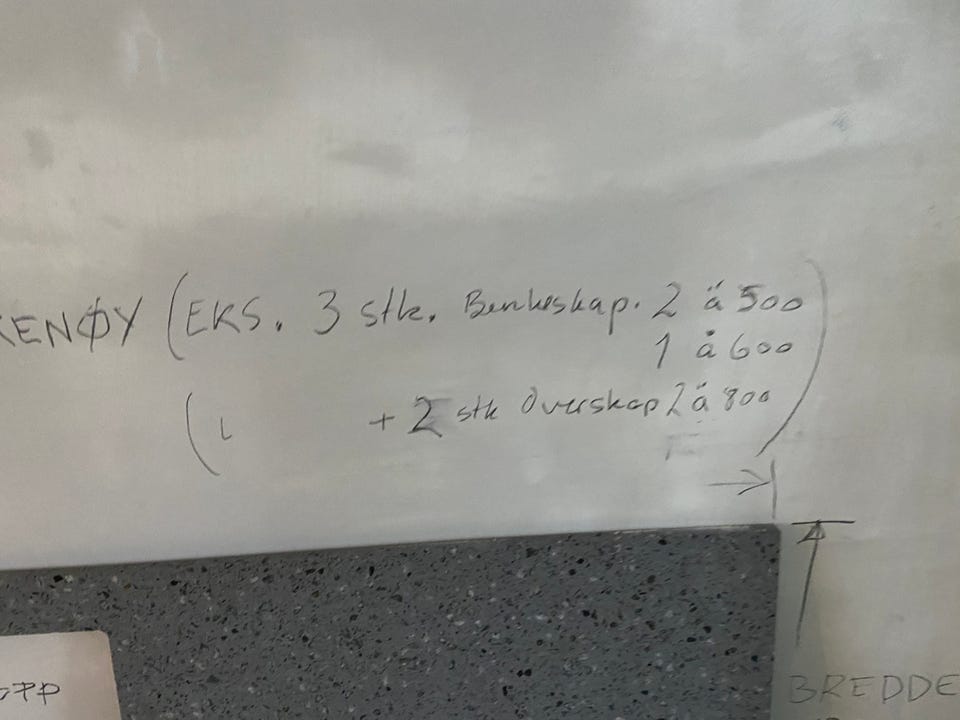 KENØY (EKS. 3 stk. Benkeskap. 2 à 500
1 à 600)
( + 2 stk Overskap 2 à 800
BREDDE